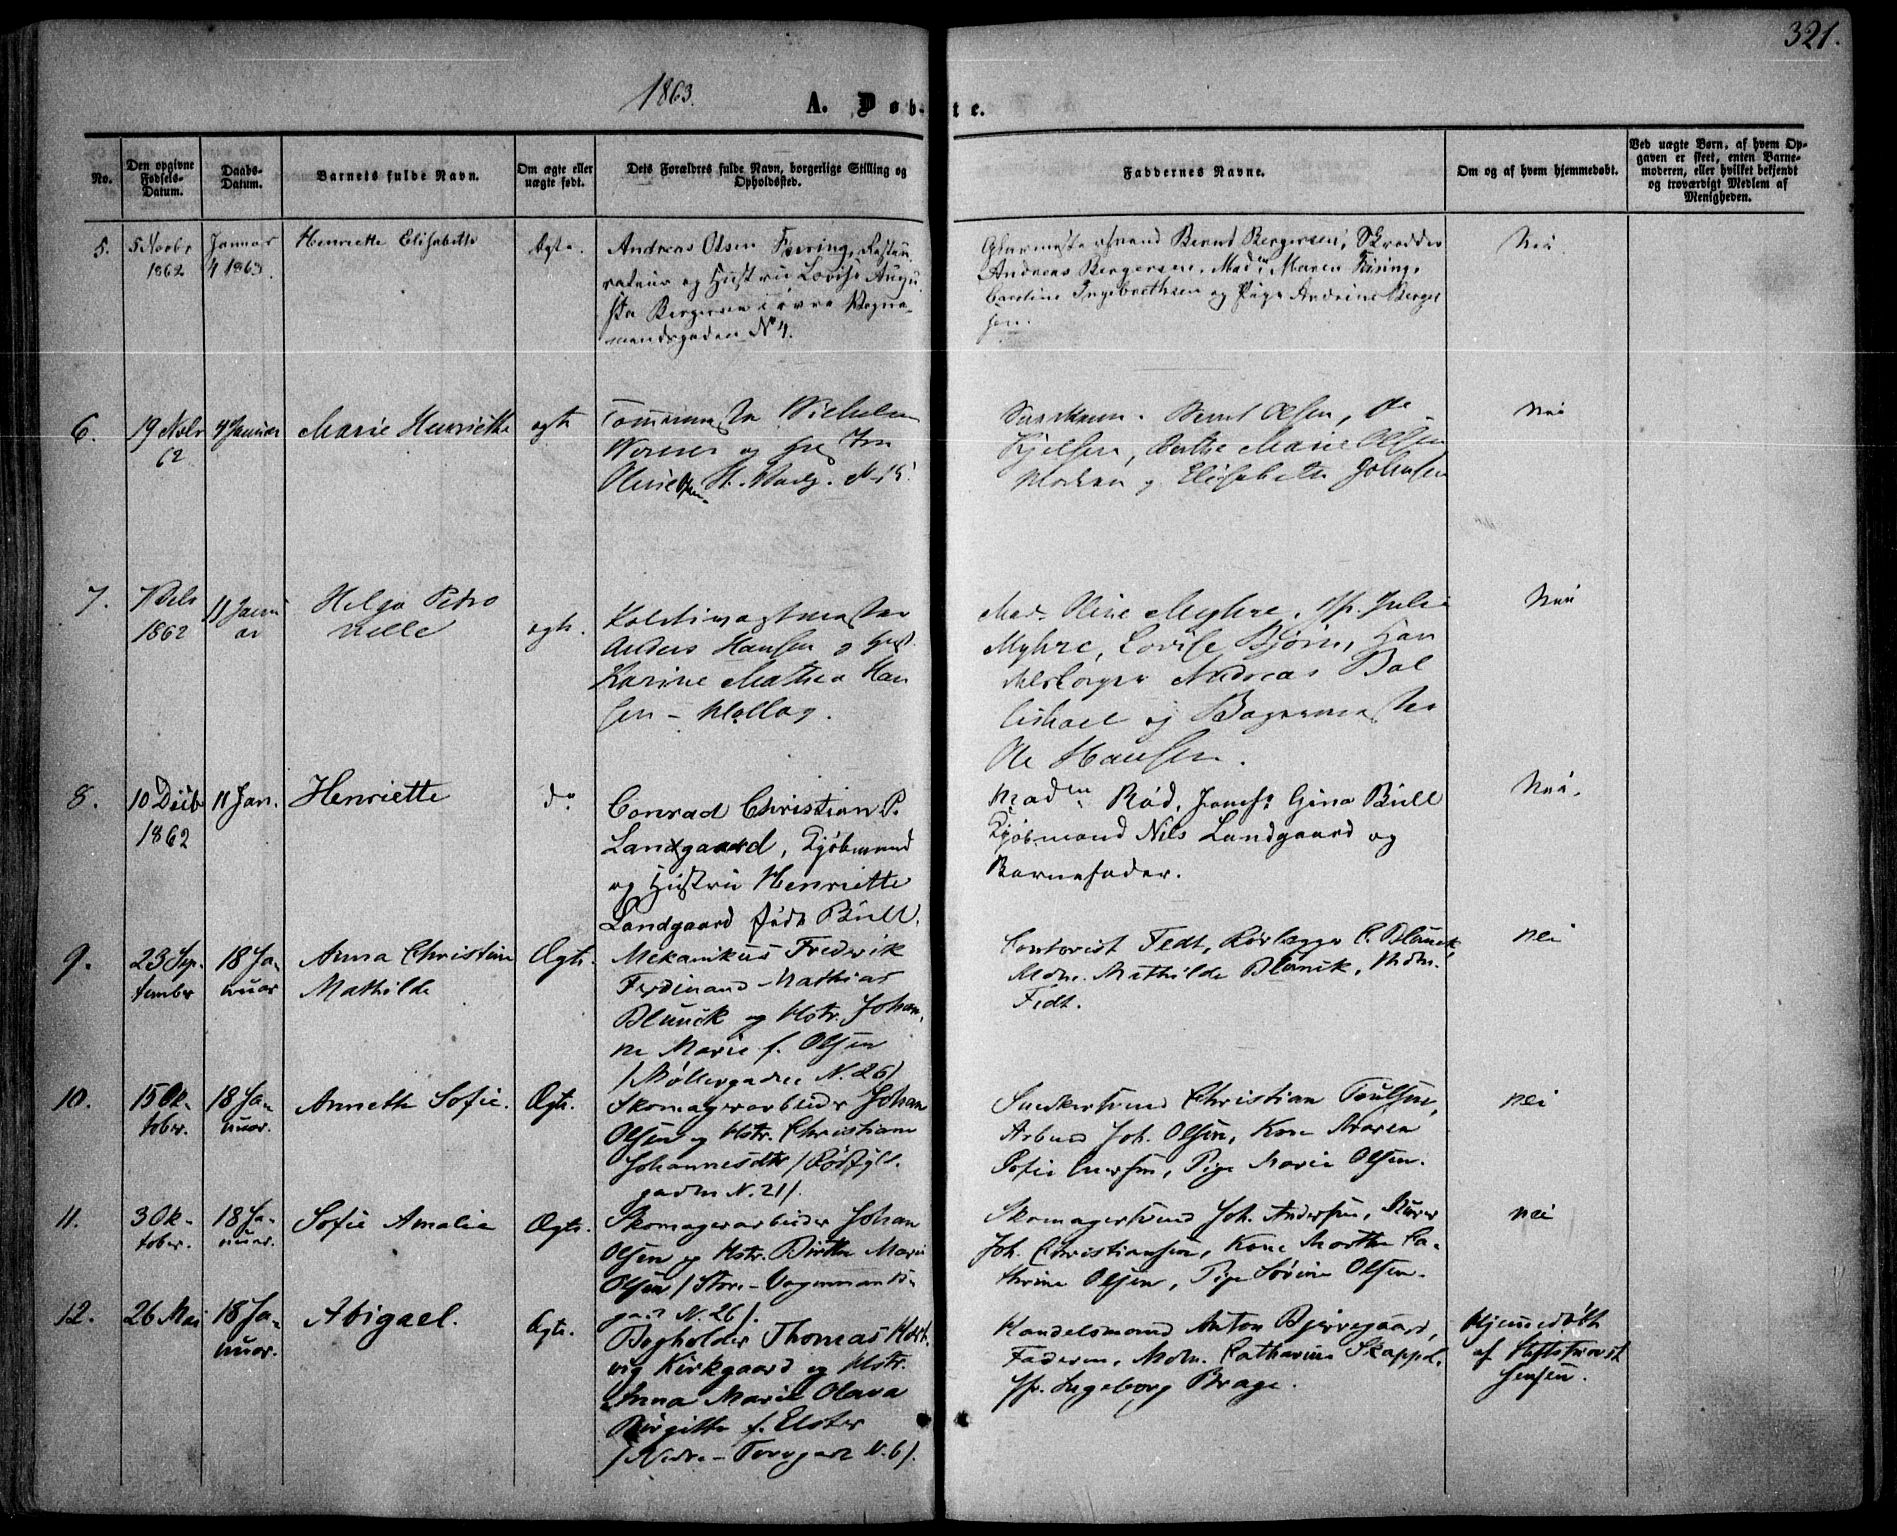 321.
1863.
A. Døb-te.
No.
Den opgivne Fødsels-Datum.
Daabs-Datum.
Barnets fulde Navn.
Om ægte eller uægte født.
Dets Forældres fulde Navn, borgerlige Stilling og Opholdssted.
Faddernes Navne.
Om og af hvem hjemmedøbt.
Ved uægte Børn, af hvem Opgaven er skeet, enten Barnemoderen, eller hvilket bekjendt og troværdigt Medlem af Menigheden.
5.
5 Novbr
1862
Januar
4 1863.
Henriette Elisabette
Ægte.
Andreas Olsen Restau
rateur og Hustru Lovise Augu
sta Bergersen i øvre Vogn
mandsgaden No 4.
Bernt Bergersen, Skrædder
Andreas Bergersen, Madm Maren
Caroline Ingebrethsen og Pige Andrine Berger
sen.
Nei
6.
19 Novbr
62
4 Januar
Marie Henriette
ægte
og
Olsen,
Berthe Marie Olsen
Elisabeth Johnsen
Nei
7.
7 Debr
1862
11 Janu
ar
Helga Petro
nelle
ægte.
Anders Hansen og Hust.
Karine Mathea Han
sen -
Mad. Oline Myhre, Jfr. Julie
Myhre, Lovise Bjørn, Han
delsborger Andreas
og Bagermester
Ole Hansen.
Nei
8.
10 Decb
1862
11 Jan.
Henriette
do
Conrad Christian P.
Landgaard, Kjøbmand
og Hustru Henriette
Landgaard født Bull.
Madm Rød, Jomfr Gina Bull
Kjøbmand Nils Landgaard og
Barnefader.
Nei.
9.
23 Sep-
tember
18 Ja-
nuar
Anna Christine
Mathilde
Ægte.
Mekanikus Frederik
Ferdinand Mathias
Blunck og Hstr. Johan-
ne Marie f. Olsen
/Møllergaden N. 26/
Contorist Fedt, Rørlægger C. Blunck,
Mdm. Mathilde Blunck, Mdm.
Fedt.
nei
10.
15 Ok-
tober.
18 Ja-
nuar.
Annette Sofie.
Ægte.
Skomagerarbeider Johan
Olsen og Hstr. Christiane
Johannesdtr
gaden N. 21/.
Snedkersvend Christian Poulsen,
Arbmd Joh. Olsen, Kone Maren
Sofie Iversen, Pige Marie Olsen.
nei
11.
3 Ok-
tober.
18 Ja-
nuar.
Sofie Amalie
Ægte.
Skomagerarbeider Johan
Olsen og Hstr. Birthe Marie
Olsen /Store-Vognmands-
gad N. 26/.
Skomagersvend Joh. Andersen, Murer
Joh. Christiansen, Kone Marthe Ca-
thrine Olsen, Pige Sørine Olsen.
nei
12.
26 Mai
18 Ja-
nuar.
Abigael.
Ægte.
Bogholder Thomas Hart-
vig Kirkgaard og Hstr.
Anna Marie Olava
Birgitte f. Elster
/Nedre-Torvgade N. 6/.
Handelsmand Anton Bjerregaard,
Faderen, Mdm. Catharine Skappel,
Jfr. Ingeborg Brage.
Hjemmedøbt
af Stiftsprovst
Jensen.